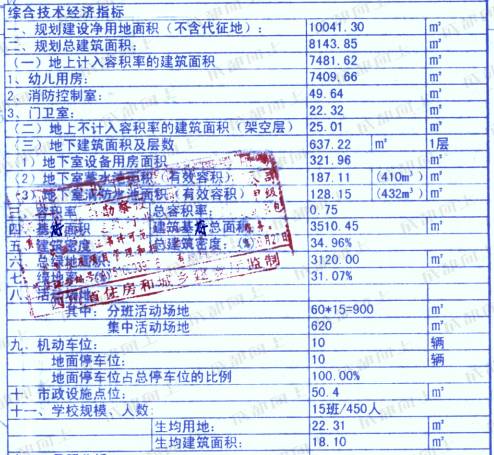 综合技术经济指标
一、规划建设净用地面积（不含代征地）: 10041.30 ㎡
二、规划总建筑面积: 8143.85 ㎡
（一）地上计入容积率的建筑面积 7481.62 ㎡
1、幼儿用房: 7409.66 ㎡
2、消防控制室: 49.64 ㎡
3、门卫室: 22.32 ㎡
（二）地上不计入容积率的建筑面积（架空层） 25.01 ㎡
（三）地下建筑面积及层数 637.22 ㎡ 1层
（1）地下室设备用房面积 321.96 ㎡
（2）地下室 水 面积（有效容积） 187.11 (410m³) ㎡
（3）地下室消防水池面积（有效容积） 128.15 (432m³) ㎡
三、容积率 总容积率: 0.75
四、基 面积 建筑基 总面积 3510.45 ㎡
五、建筑密度 总建筑密度: 34.96%
六、总 地面积: 3120.00 ㎡
绿地率 31.07%
八、活动场地
其中: 分班活动场地 60*15=900 ㎡
集中活动场地 620 ㎡
九、机动车位: 10 辆
地面停车位: 10 辆
地面停车位占总停车位的比例 100.00%
十、市政设施点位: 50.4 ㎡
十一、学校规模、人数: 15班/450人
生均用地: 22.31 ㎡
生均建筑面积: 18.10 ㎡
省住房和城乡 监制